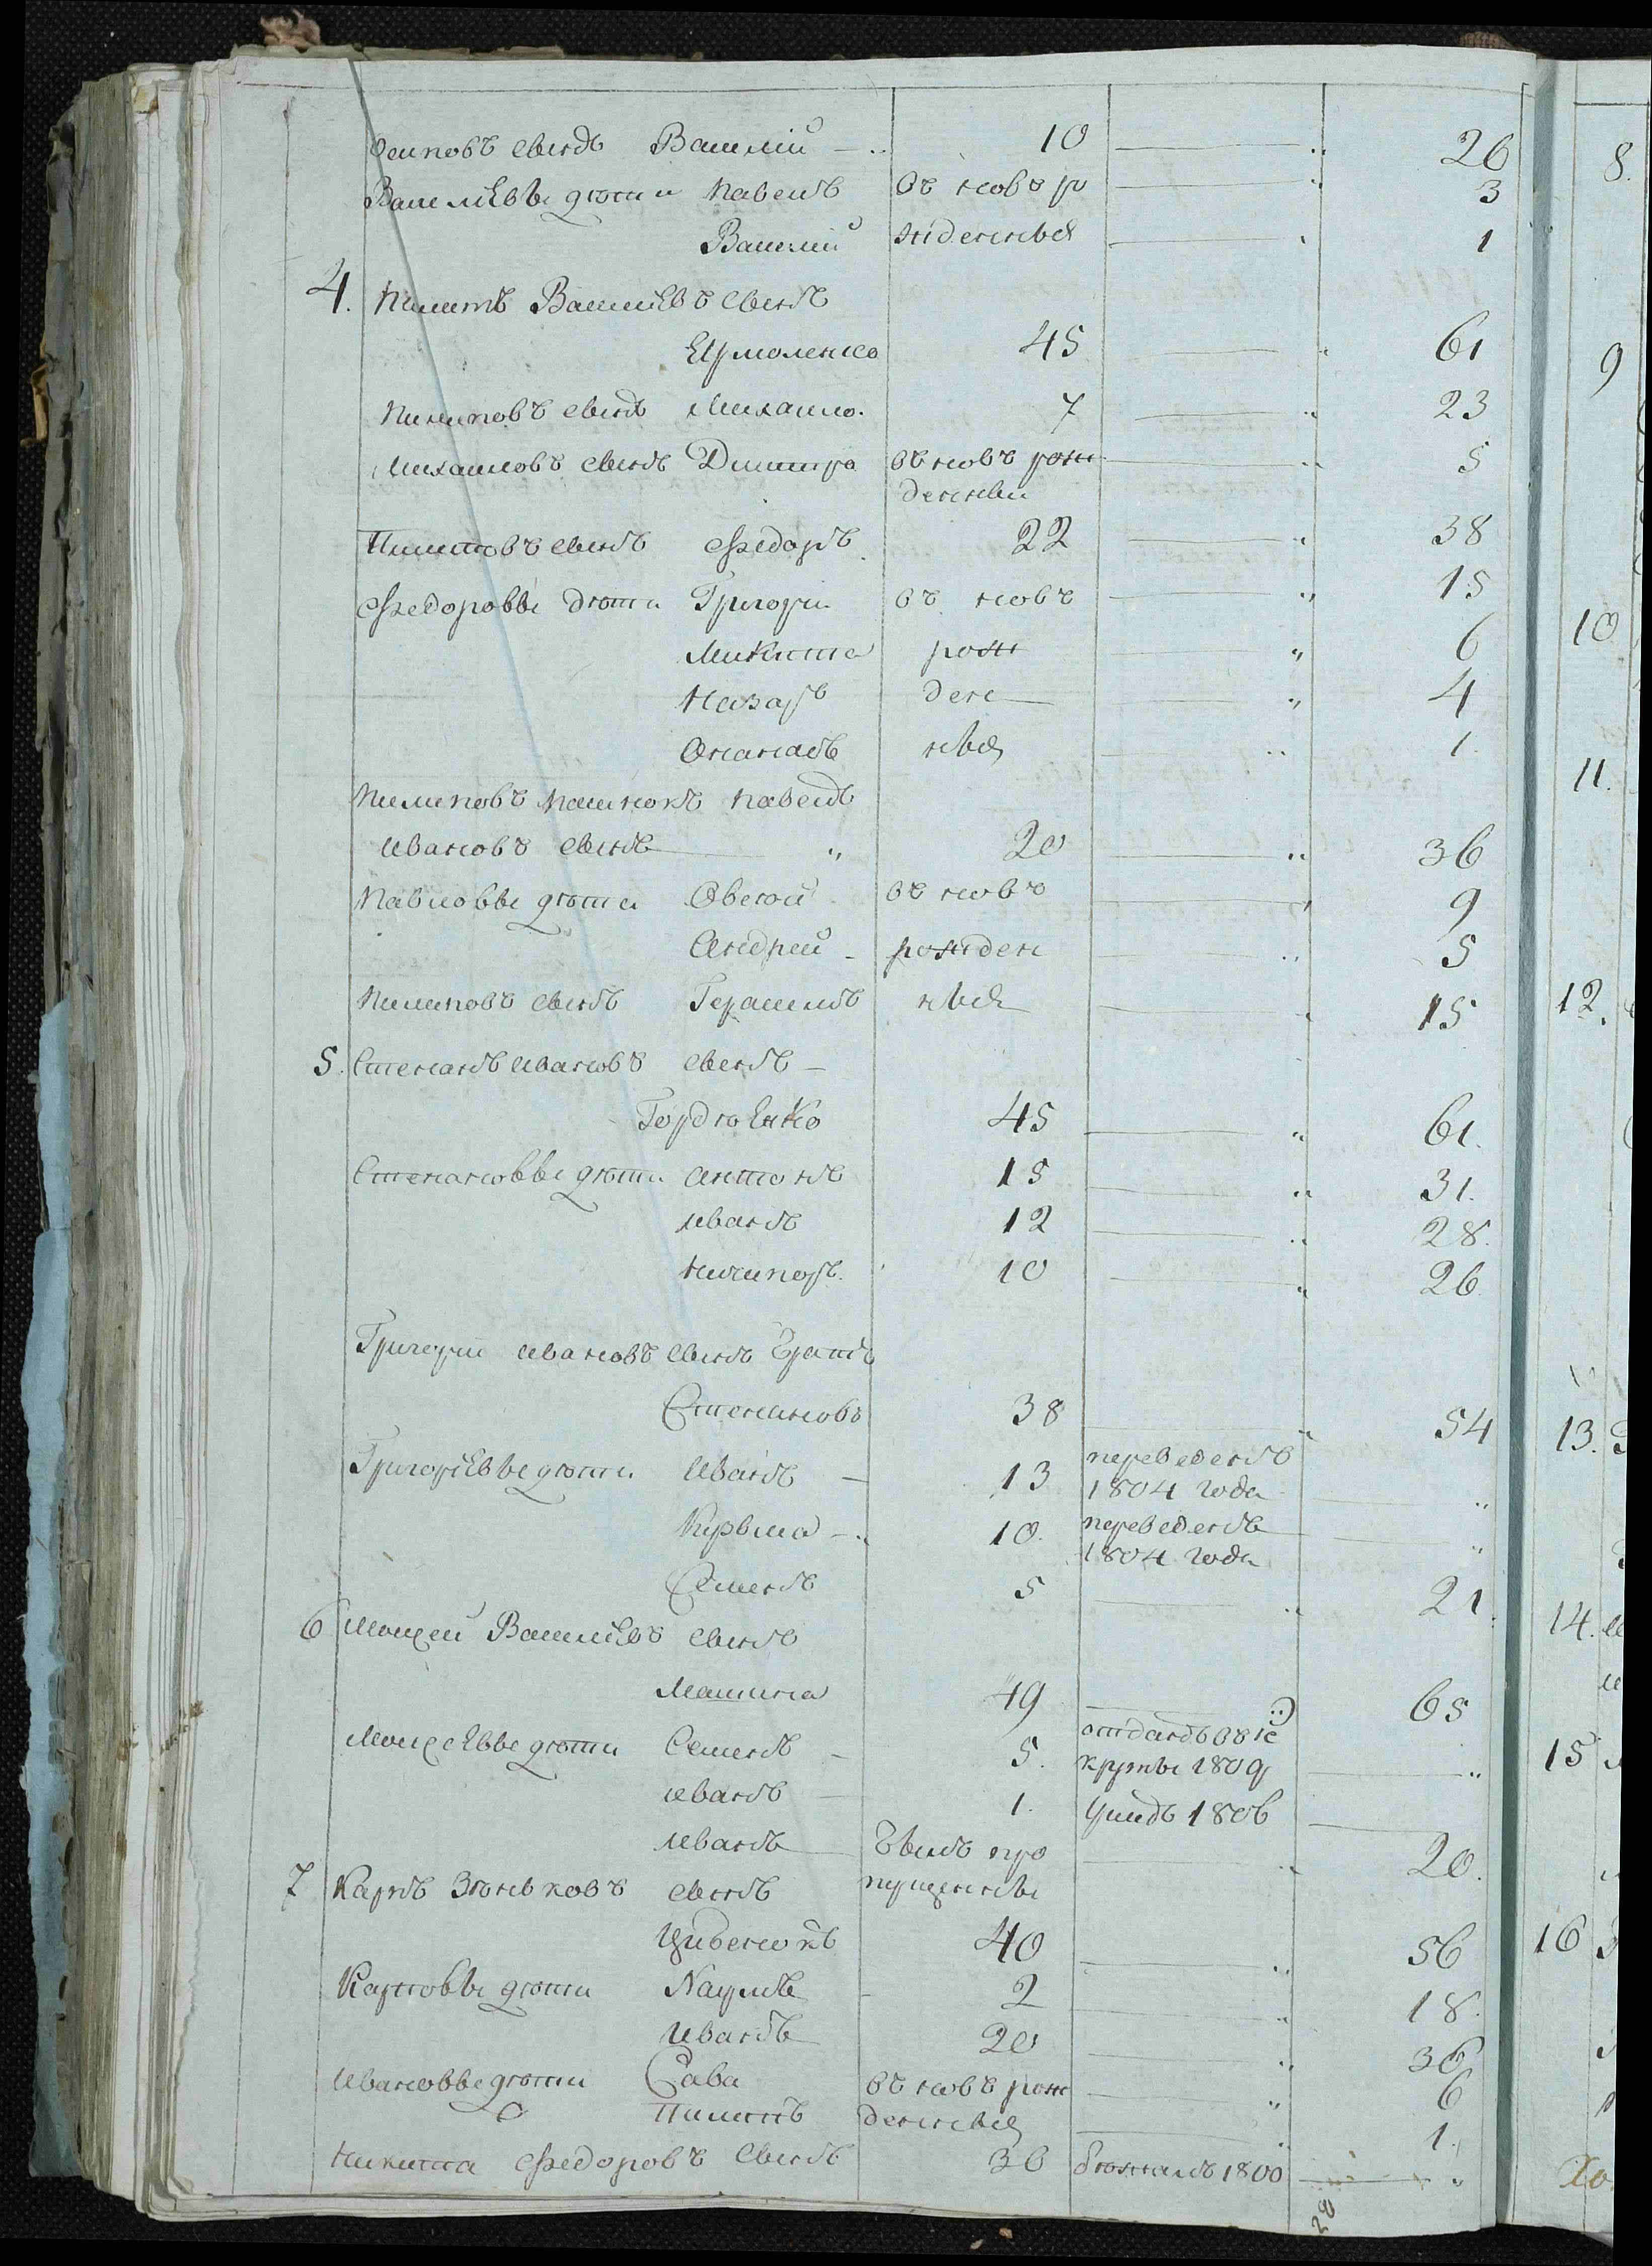 Осиповъ сынъ Василій 10 26
Василіевы дѣти Павелъ въ новѣ ро 3
Василій жденныя 1
4. Пилипъ Васильевъ сынъ
Ермоленко 45 61
Пилиповъ сынъ Михайло 7 23
Михайловъ сынъ Дмитро въ новѣ рож 5
денный
Пилиповъ сынъ Федоръ 22 38
Федоровы дѣти Григори въ новѣ 15
Микита рож 6
Назаръ ден 4
Опанасъ ныя 1
Пилиповъ пасинокъ Павелъ
Ивановъ сынъ 20 36
Павловы дѣти Овсій въ новѣ 9
Андрей рожден 5
Пилиповъ сынъ Герасимъ ныя 15
5. Степанъ Ивановъ сынъ
Гордіенко 45 61.
Степановы дѣти Антонъ 15 31.
Иванъ 12 28.
Ничипоръ 10 26
Григорій Ивановъ сынъ братъ
Степановъ 38 54
Григоріевы дѣти Иванъ 13 переведенъ
1804 года
Кузьма 10. переведенъ
1804 года
Семенъ 5 21.
6 Моисей Василіевъ сынъ
49 65
Моисеевы дѣти Семенъ 5. отданъ въ ре
круты 1809
Иванъ 1. умръ 1806
Иванъ былъ про 20.
7 Карпъ сынъ пущенны
40 56
Карповы дѣти Наумъ 2 18.
Иванъ 20 36
Ивановы дѣти Сава въ новѣ рож 6
Пилипъ денныя 1.
Никита Федоровъ сынъ 36 бѣжалъ 1800
28
8.
9
10
11.
12.
13.
14.
15
16